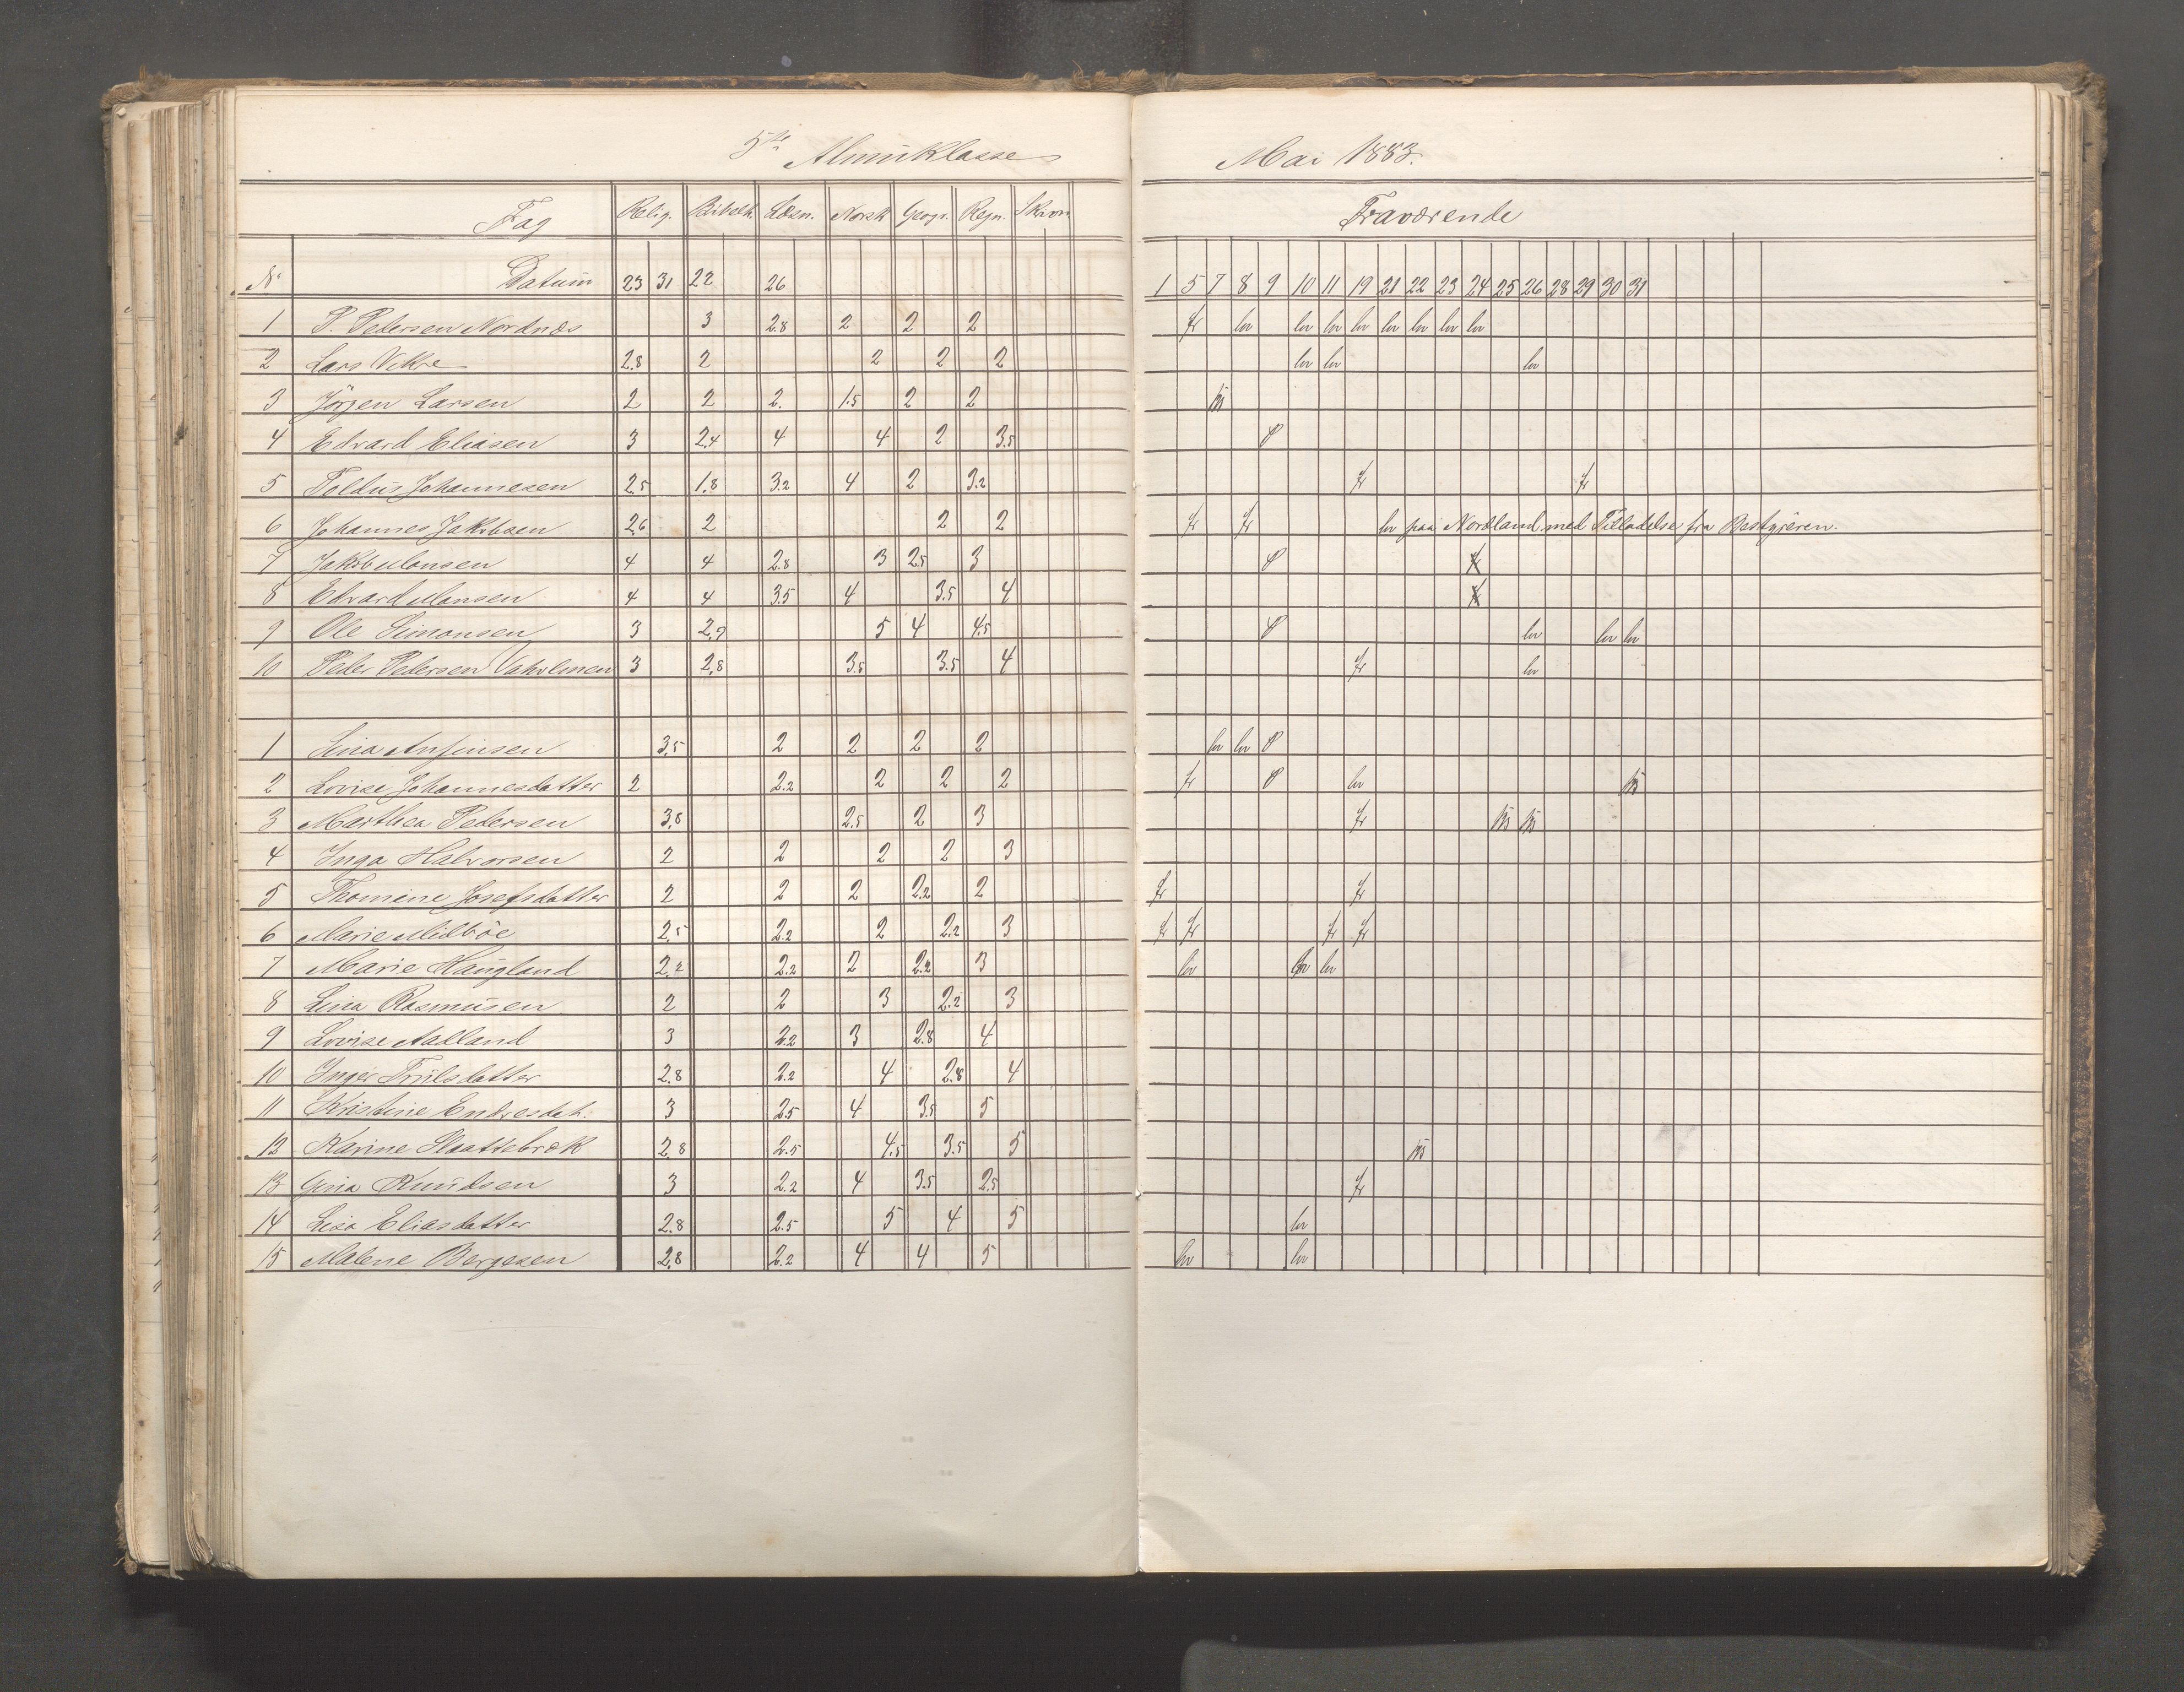 5te Almuklasse Mai 1883.
Fag Relig. Bibelh. Læsn. Norsk Geogr. Regn. Skrivn Fraværende
No Datum 23 31 22 26 1 5 7 8 9 10 11 19 21 22 23 24 25 26 28 29 30 31
1 P. Pedersen Nordnæs 3 2.8 2 2 2 fr lov lov lov lov lov lov lov lov
2 Lars Vikse 2.8 2 2 2 2 lov lov lov
3 Jörgen Larsen 2 2 2. 1.5 2 2
4 Edvard Eliasen 3 2,4 4 4 2 3.5 P
5 Poldus Johannesen 2.5 1.8 3.2 4 2 3.2 fr fr
6 Johannes Jakobsen 2,6 2 2 2 fr fr lov paa Nordland med Tilladelse fra Bestyreren.
7 Jakob Monsen 4 4 2.8 3 2.5 3 P
8 Edvard Monsen 4 4 3.5 4 3.5 4
9 Ole Simonsen 3 2,9 5 4 4.5 P lov lov lov
10 Peder Pedersen Vaholmen 3 2,8 3.5 3.5 4 fr lov
1 Sina Anfinsen 3,5 2 2 2 2 lov lov P
2 Lovise Johannesdatter 2 2.2 2 2 2 fr P lov
3 Marthea Pedersen 3,8 2.5 2 3 fr
4 Inga Halvorsen 2 2 2 2 3
5 Thomine Josefsdatter 2 2 2 2.2 2 fr fr
6 Marie Midböe 2,5 2.2 2 2.2 3 fr fr fr fr
7 Marie Haugland 2,2 2.2 2 2.2 3 lov lov lov
8 Lina Rasmusen 2 2 3 2.2 3
9 Lovise Aadland 3 2.2 3 2.8 4
10 Inger Trulsdatter 2.8 2.2 4 2.8 4
11 Kristine Endresdat. 3 2.5 4 3.5 5
12 Karine Slaattebræk 2,8 2.5 4.5 3.5 5
13 Gina Knudsen 3 2.2 4 3.5 2.5 fr
14 Lisa Eliasdatter 2.8 2.5 5 4 5 lov
15 Malene Bergesen 2,8 2.2 4 4 5 lov lov